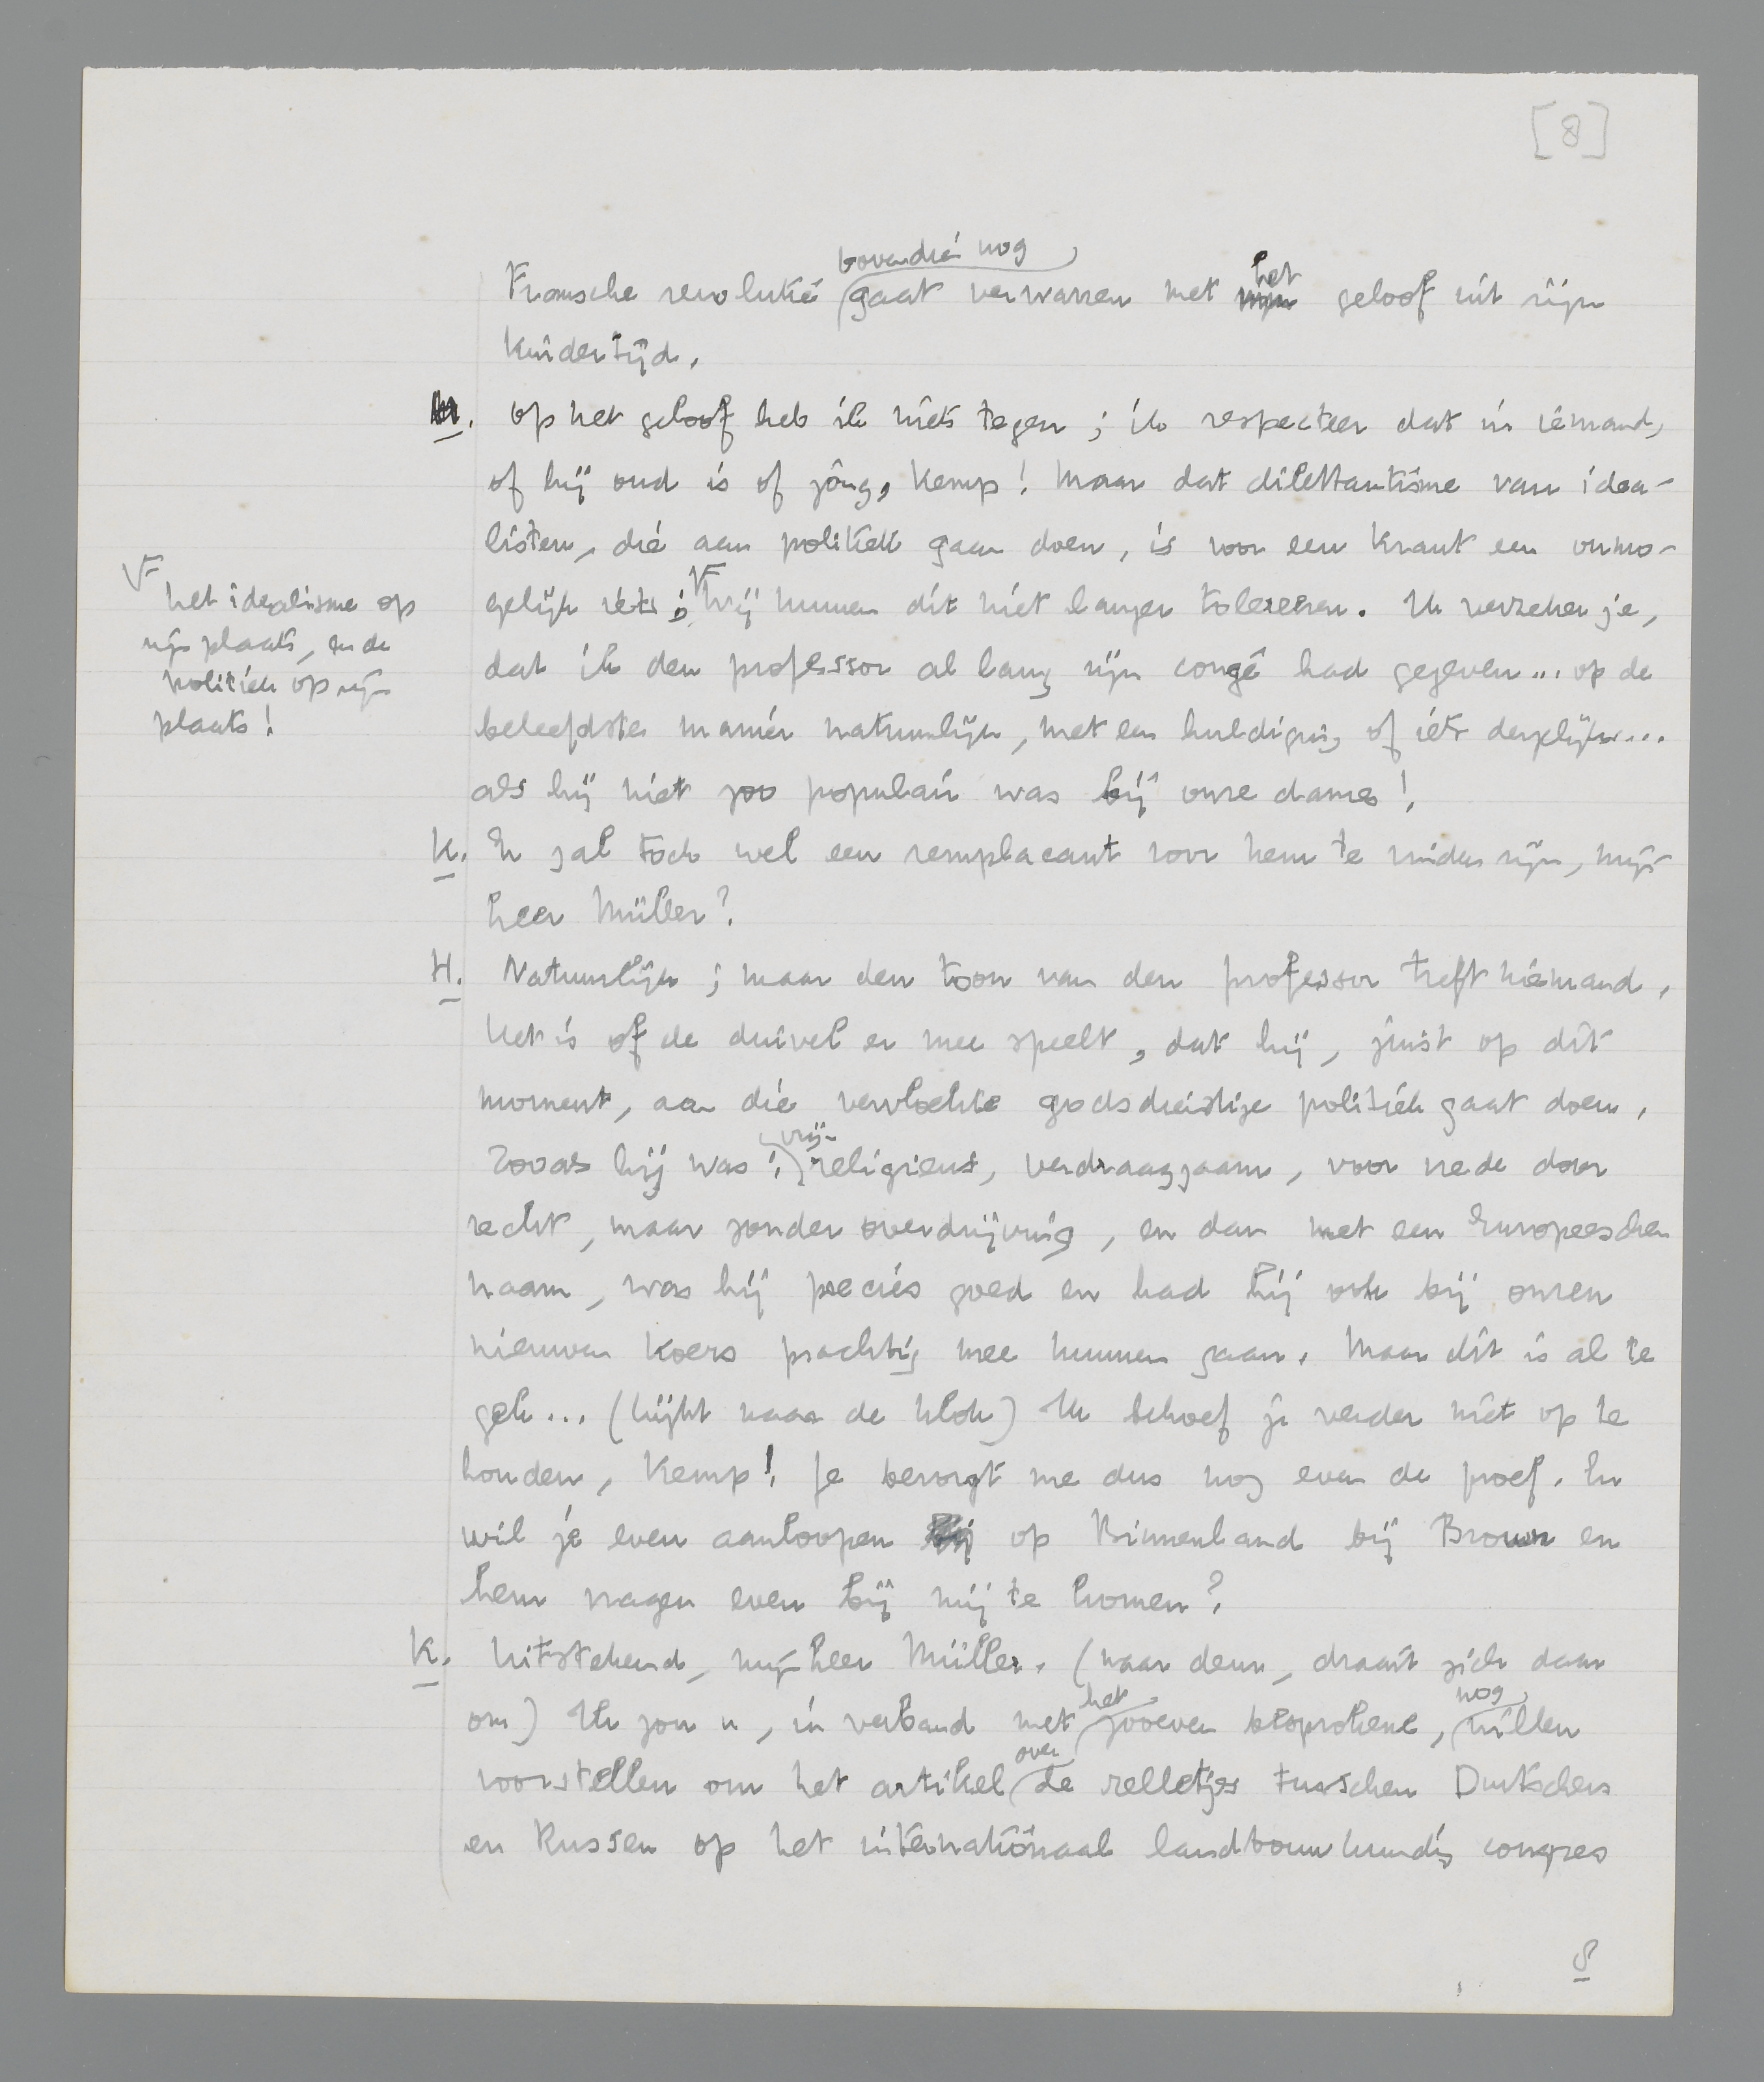 [8]
bovendien nog
Fransche revolutie gaat verwarren met het geloof uit zijn
kindertijd.
M. Op het geloof heb ik niets tegen; ik respecteer dat in iemand,
of hij oud is of jong, Kemp! Maar dat dilettantisme van idea-
listen, die aan politiek gaan doen, is voor een krant een onmo-
gelijk iets; Wij kunnen dit niet langer tolereren. Ik verzeker je,
het idealisme op
zijn plaats, en de
politiek op zijn
plaats!
dat ik den professor al lang zijn congé had gegeven... op de
beleefdste manier natuurlijk, met een huldiging of iets dergelijks...
als hij niet zoo populair was bij onze dames!
K. Er zal toch wel een remplacant voor hem te vinden zijn, mijn-
heer Müller?
H. Natuurlijk; maar den toon van den professor treft niemand.
Het is of de duivel er mee speelt, dat hij, juist op dit
moment, aan die vervloekte godsdienstige politiek gaat doen.
vrij-
Zooals hij was: religieus, verdraagzaam, voor vrede door
recht, maar zonder overdrijving, en dan met een Europeeschen
naam, was hij precies goed en had hij ook bij onzen
nieuwen koers prachtig mee kunnen gaan. Maar dit is al te
gek... (kijkt naar de klok) Ik behoef je verder niet op te
houden, Kemp! Je bezorgt me dus nog even de proef. En
wil je even aanloopen op Binnenland bij Brouwn en
hem vragen even bij mij te komen?
K. Uitstekend, mijnheer Müller. (naar deur, draait zich daar
het nog
om) Ik zou u, in verband met zooeven besprokene, willen
over
voorstellen om het artikel de relletjes tusschen Duitschers
en Russen op het internationaal landbouwkundig congres
8